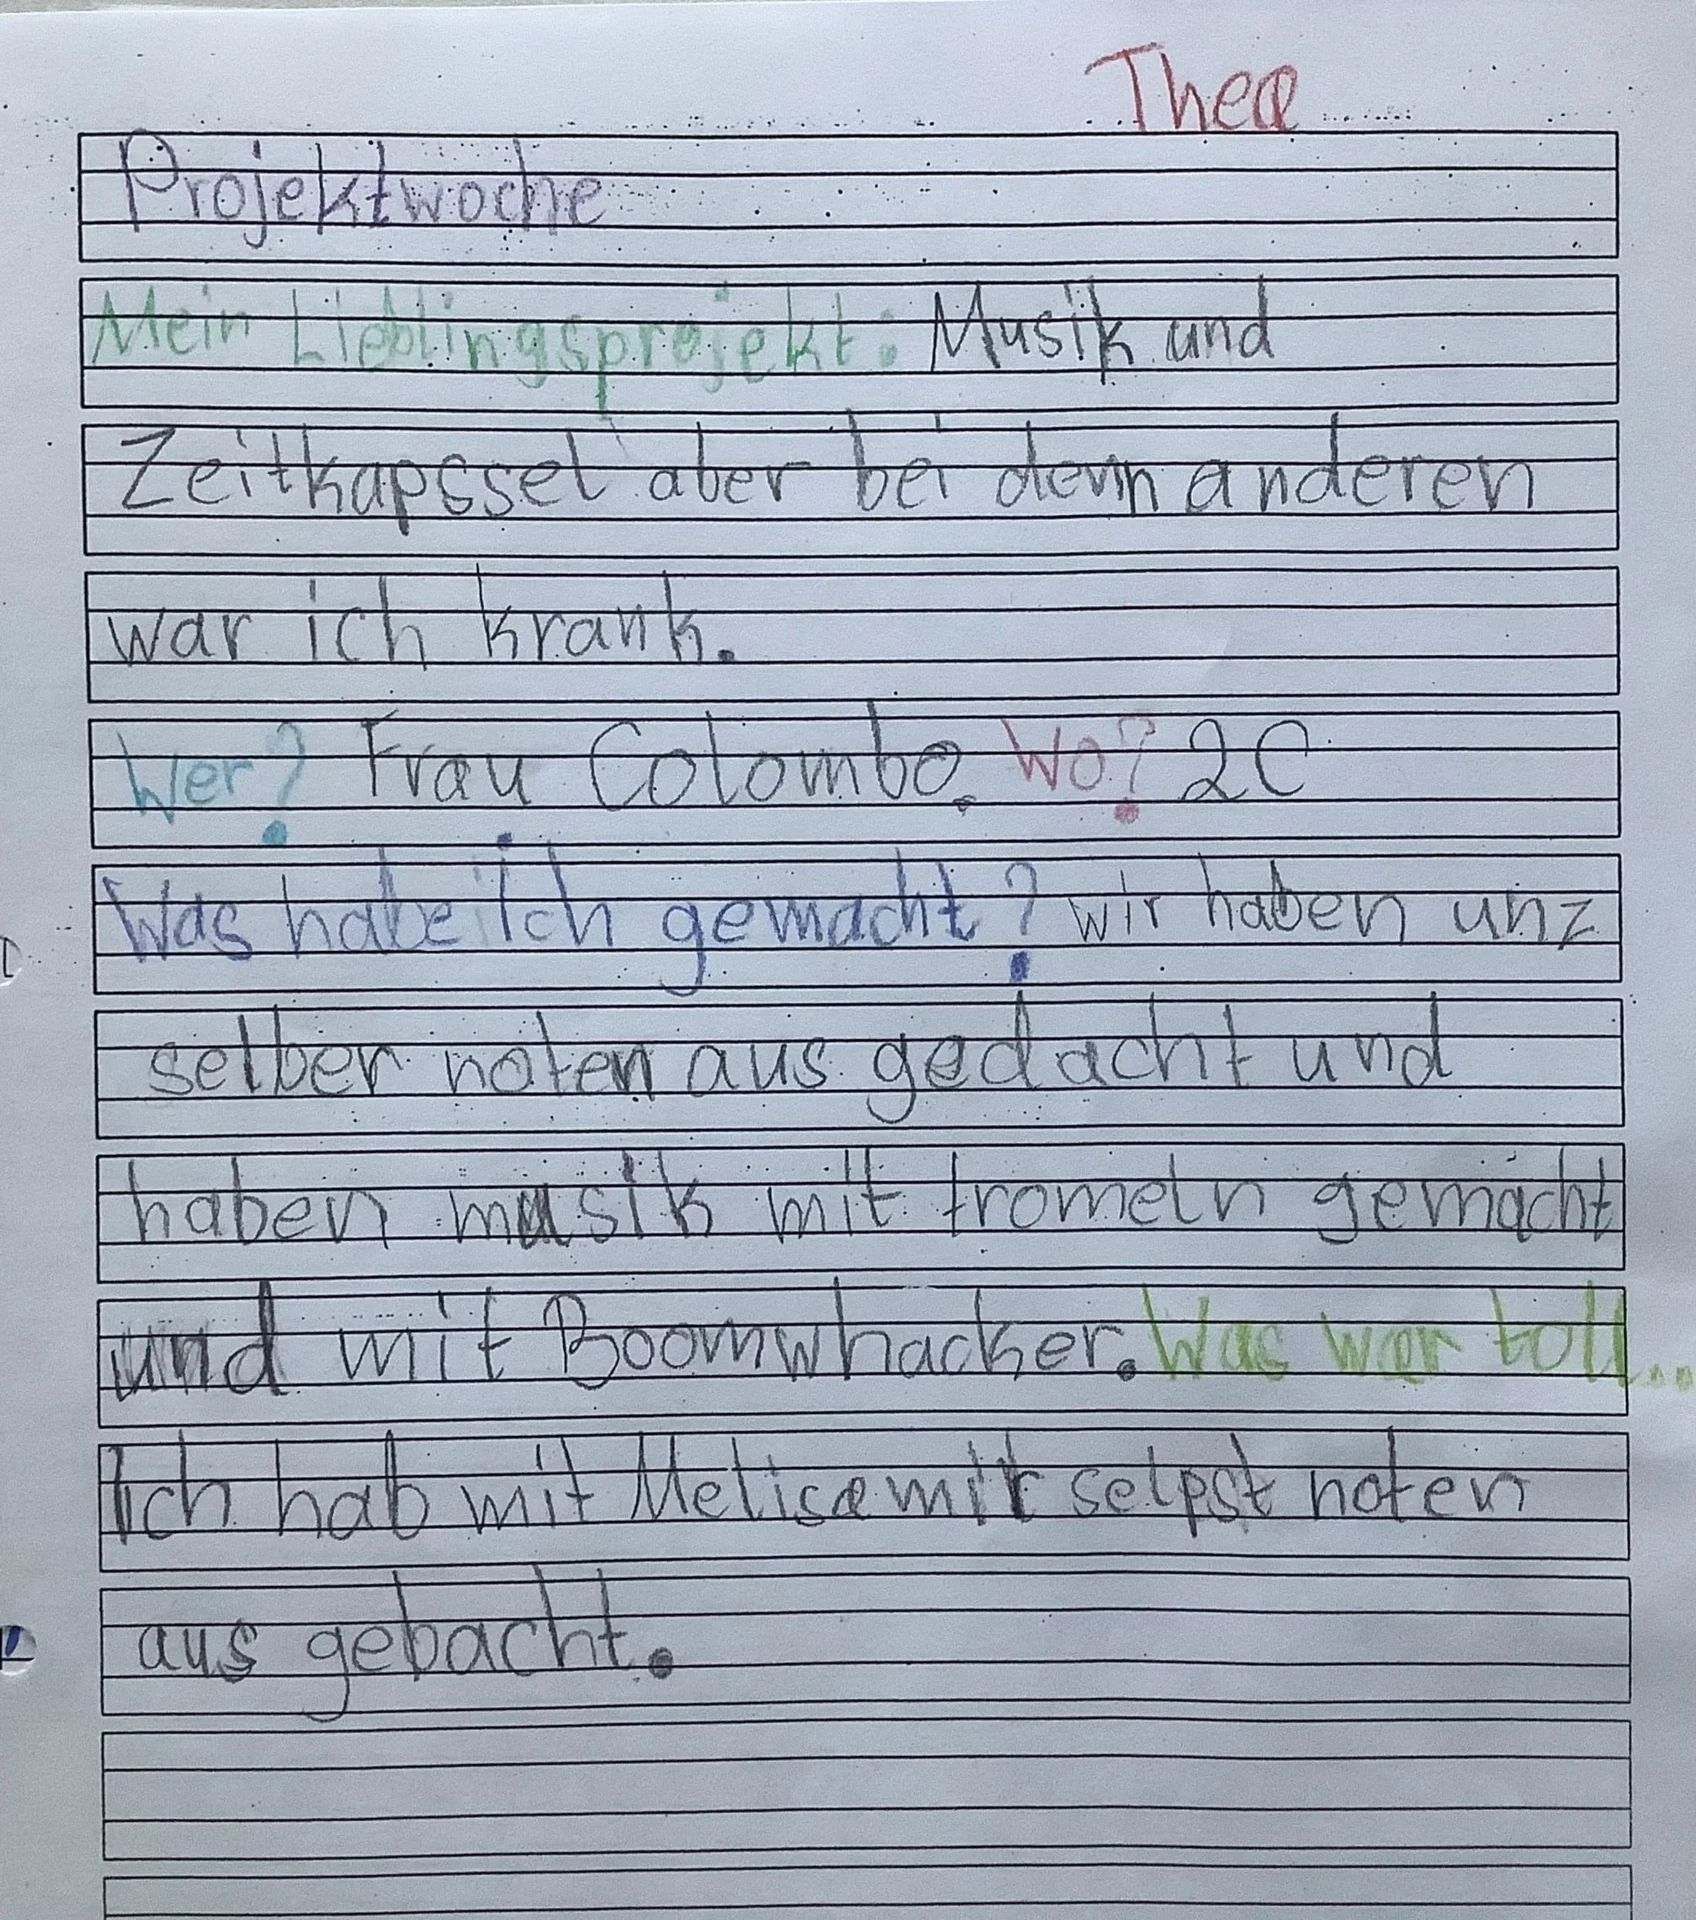 Thea
Projektwoche
Mein Lieblingsprojekt: Musik und
Zeitkapssel aber bei denn anderen
war ich krank.
Wer? Frau Colombo. Wo? 2C
Was habe ich gemacht? wir haben unz
selber noten aus gedacht und
haben musik mit tromeln gemacht
und mit Boomwhacker. Was war toll...
Ich hab mit Melisa mir selpst noten
aus gebacht.